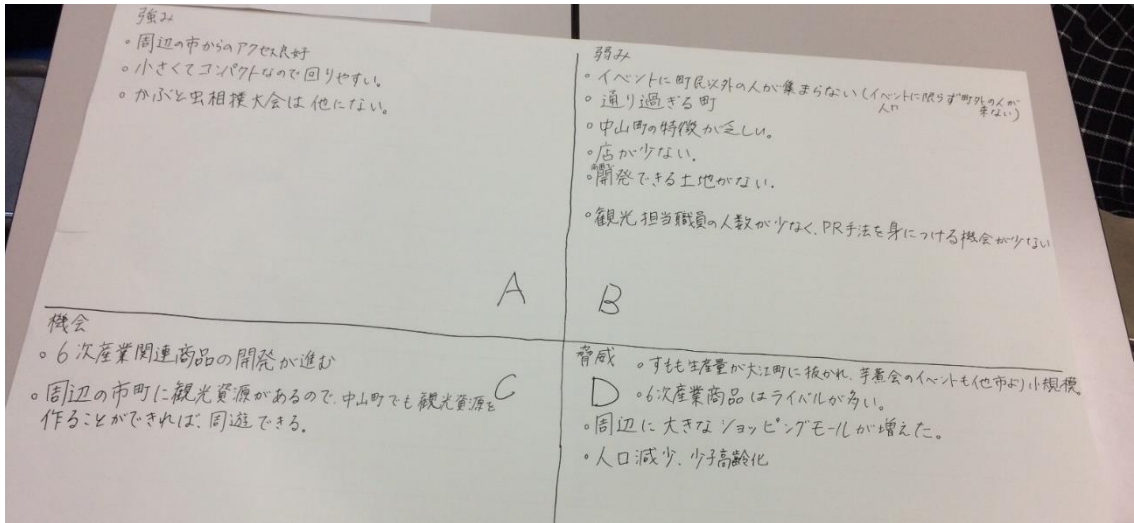 強み
・周辺の市からのアクセス良好
・小さくてコンパクトなので回りやすい。
・かぶと虫相撲大会は他にない。
A
弱み
・イベントに町民以外の人が集まらない(イベントに限らず町外の人が
来ない)
・通り過ぎる町
・中山町の特徴が乏しい。
・店が少ない。
・開発できる土地がない。
・観光担当職員の人数が少なく、PR手法を身につける機会が少ない
B
機会
・6次産業関連商品の開発が進む
・周辺の市町に観光資源があるので、中山町でも観光資源を
作ることができれば、周遊できる。
C
脅威
・すもも生産量が大江町に抜かれ、芋煮会のイベントも他市より小規模。
・6次産業商品はライバルが多い。
・周辺に大きなショッピングモールが増えた。
・人口減少、少子高齢化
D